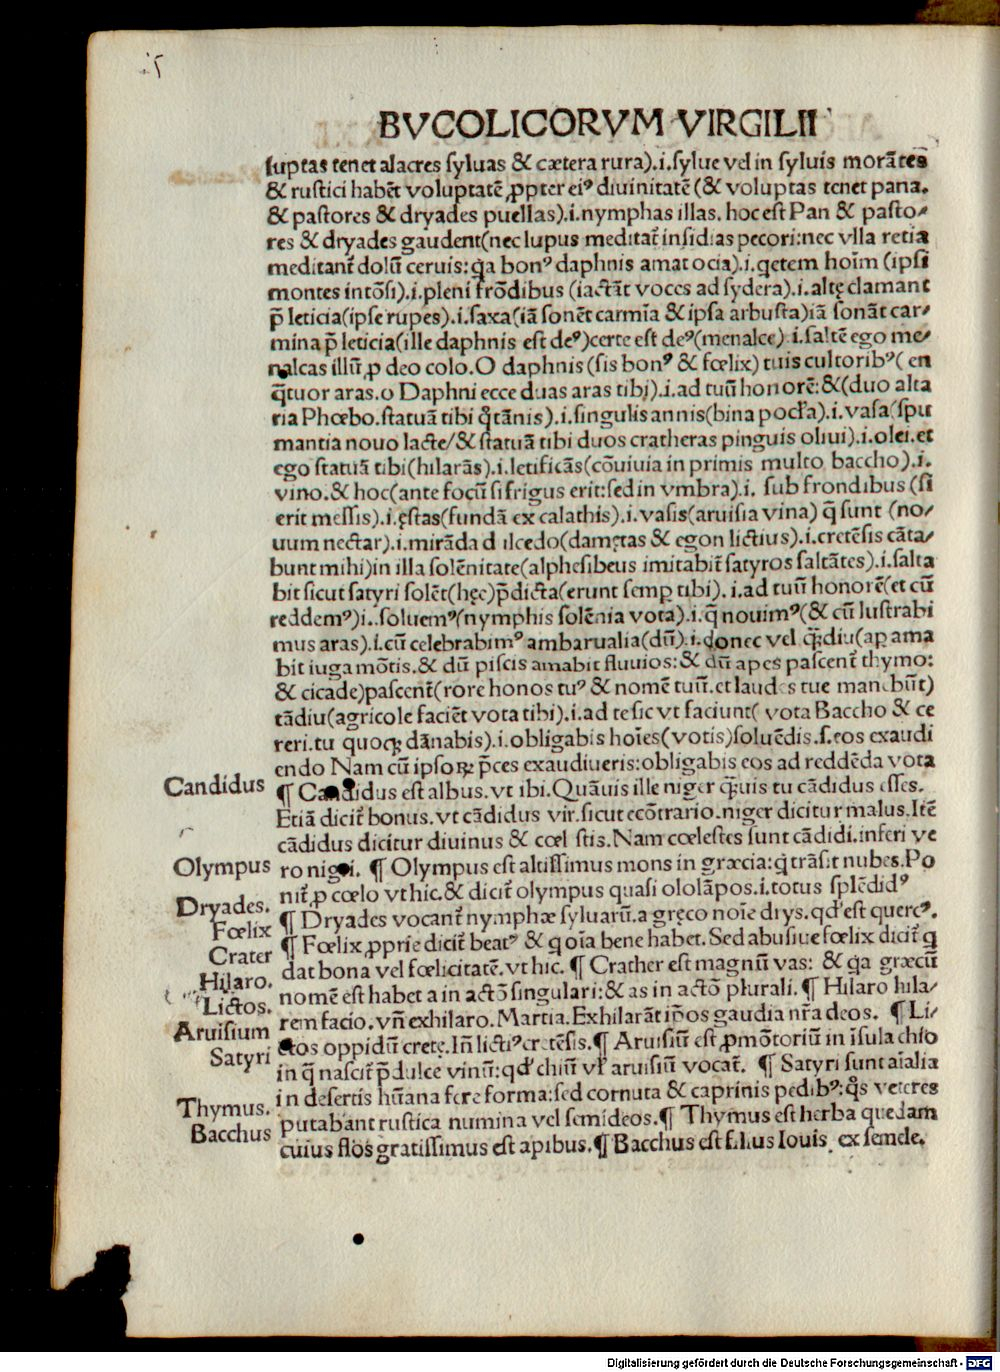 BVCOLICORVM VIRGILII
luptas tenet alacres syluas & cætera rura).i.sylue vel in syluis morātes
& rustici habēt voluptatē ꝓpter eiꝰ diuinitatē (& voluptas tenet pana.
& pastores & dryades puellas).i.nymphas illas. hoc est Pan & pasto/
res & dryades gaudent(nec lupus meditat̃ insidias pecori:nec vlla retia
meditant̃ dolū ceruis:q̃a bonꝰ daphnis amat ocia).i.qetem hoīm (ipsi
montes intōsi).i.pleni frōdibus (iactāt voces ad sydera).i.altę clamant
p̄ leticia(ipse rupes).i.saxa(iā sonēt carmīa & ipsa arbusta)iā sonāt car/
mina p̄ leticia(ille daphnis est deꝰ)certe est deꝰ(menalce).i.saltē ego me/
nalcas illū ꝓ deo colo.O daphnis(sis bonꝰ & fœlix) tuis cultoribꝰ( en
q̄tuor aras.o Daphni ecce duas aras tibi).i.ad tuū honorē:&(duo alta
ria Phœbo.statuā tibi q̊tānis).i.singulis annis(bina pocła).i.vasa(spu
mantia nouo lacte/& statuā tibi duos cratheras pinguis oliui).i.olei.et
ego statuā tibi(hilarās).i.letificās(cōuiuia in primis multo baccho).i.
vino.& hoc(ante focū si frigus erit:sed in vmbra).i. sub frondibus (si
erit messis).i.ęstas(fundā ex calathis).i.vasis(aruisia vina) q̄ sunt (no/
uum nectar).i.mirāda d ilcedo(damętas & egon lictius).i.cretēsis cāta/
bunt mihi)in illa solēnitate(alphesibeus imitabit̃ satyros saltātes).i.salta
bit sicut satyri solēt(hęc)p̄dicta(erunt semꝑ tibi). i.ad tuū honorē(et cū
reddemꝰ)i.soluemꝰ(nymphis solēnia vota).i.q̄ nouimꝰ(& cū lustrabi
mus aras).i.cū celebrabimꝰ ambarualia(dū).i.donec vel q̄diu(aper ama
bit iuga mōtis.& dū piscis amabit fluuios:& dū apes pascent̃ thymo:
& cicade)pascent̃(rore honos tuꝰ & nomē tuū.et laudes tue manebūt)
tādiu(agricole faciēt vota tibi).i.ad te sic vt faciunt( vota Baccho & ce
reri.tu quoq; dānabis).i.obligabis hoīes(votis)soluēdis.s.eos exaudi
endo Nam cū ipsoꝝ p̄ces exaudiueris:obligabis eos ad reddēda vota
Candidus
¶ Candidus est albus.vt ibi.Quāuis ille niger q̄uis tu cādidus esses.
Etiā dicit̃ bonus.vt cādidus vir.sicut ecōtrario.niger dicitur malus.Itē
cādidus dicitur diuinus & cœl stis.Nam cœlestes sunt cādidi.inferi ve
Olympus
ro nigri. ¶ Olympus est altissimus mons in græcia:q̇ trāsit nubes.Po
nit̃ ꝓ cœlo vt hic.& dicit̃ olympus quasi ololāpos.i.totus splēdidꝰ
Dryades.
¶ Dryades vocant̃ nymphæ syluarū.a gręco noīe drys.qd̛ est quercꝰ.
Fœlix
¶ Fœlix ꝓprie dicit̃ beatꝰ & q oīa bene habet.Sed abusiue fœlix dicit̃ q
Crater
dat bona vel fœlicitatē.vt hic. ¶ Crather est magnū vas: & q̇a græcū
Hilaro.
nomē est habet a in actō singulari:& as in actō plurali.¶ Hilaro hila/
Lictos.
rem facio.vñ exhilaro.Martia.Exhilarāt ip̄os gaudia nr̄a deos. ¶ Li/
Aruisium
ctos oppidū cretę.Iñ lictiꝰ cretēsis.¶ Aruisiū est ꝓmōtoriū in īsula chio
Satyri
in q̄ nascit̃ p̄dulce vinū:qd̛ chiū vł aruisiū vocat̃. ¶ Satyri sunt aīalia
in desertis hūana fere forma:sed cornuta & caprinis pedibꝰ:q̊s veteres
Thymus.
putabant rustica numina vel semideos.¶ Thymus est herba quedam
Bacchus
cuius flos gratissimus est apibus.¶ Bacchus est filius Iouis ex semele.
Digitalisierung gefördert durch die Deutsche Forschungsgemeinschaft - DFG